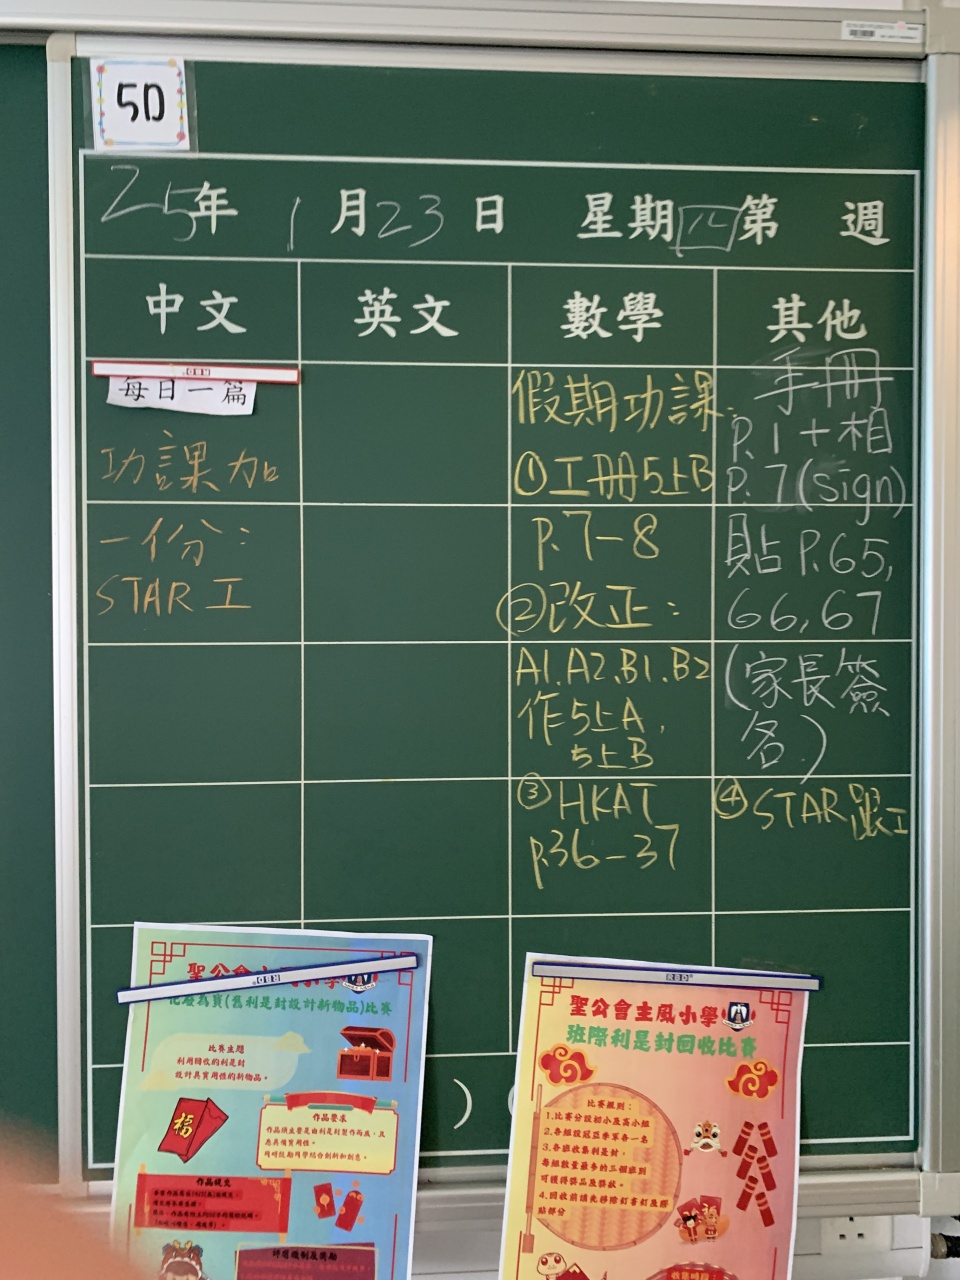 5D
25年 1月23日 星期四 第 週
中文 英文 數學 其他
每日一篇
功課加
一份:
STAR工
假期功課:
①工冊5上B
P.7-8
②改正:
A1、A2、B1、B2
作5上A,
5上B
③HKAT
p.36-37
手冊
P.1+相
P.7(sign)
貼P.65,
66,67
(家長簽
名)
④STAR跟工
)
RBD
(舊利是封設計新物品)比賽
比賽主題
利用回收的利是封
設計具實用性的新物品。
福
作品要求
作品須主要是由利是封製作而成,且
應具備實用性。
同時鼓勵同學結合創新和創意。
作品提交
時間機制及獎勵
RBD
聖公會主風小學
班際利是封回收比賽
比賽細則:
1.比賽分設初小及高小組
2.各組設冠亞季軍各一名
3.各班收集利是封,
每組數量最多的三個班別
可獲得獎品及獎狀。
4.回收前請先移除釘書釘及膠
貼部分